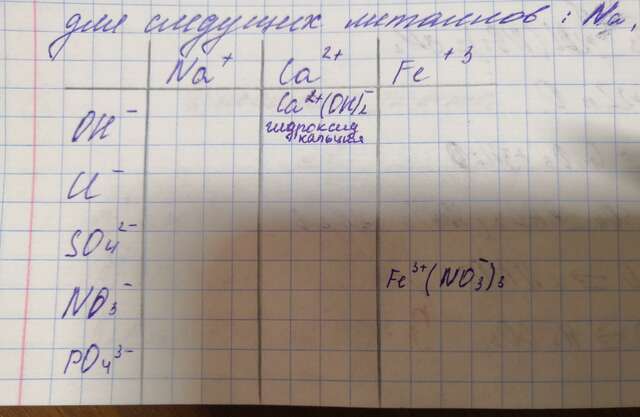 для следущих металлов: Na,
Na⁺ Ca²⁺ Fe⁺³
Ca²⁺(OH)⁻₂
OH⁻ гидроксид
кальция
Cl⁻
SO₄²⁻
Fe³⁺(NO₃⁻)₃
NO₃⁻
PO₄³⁻